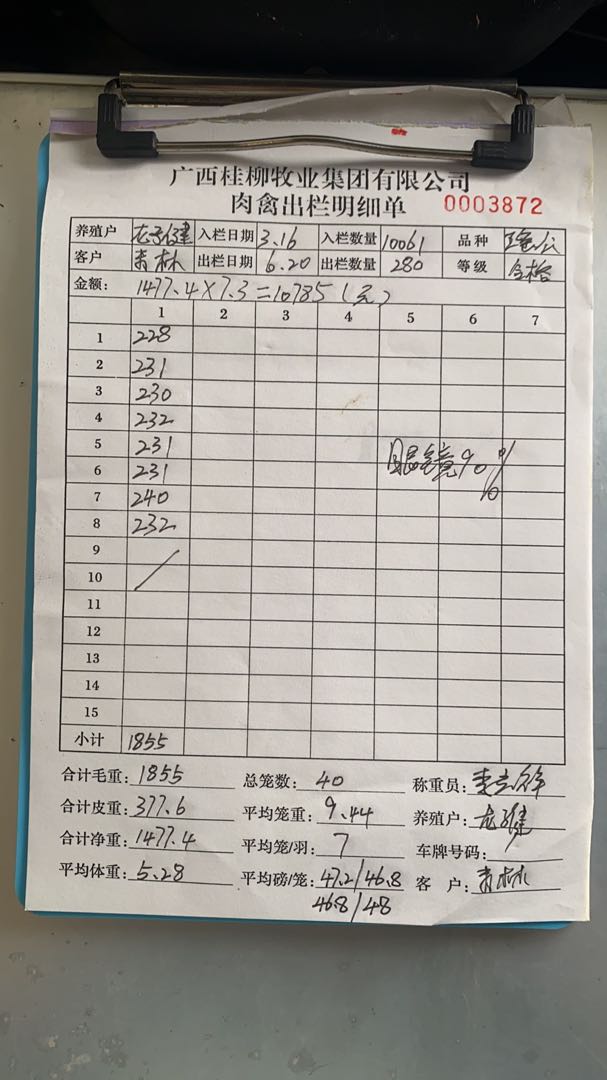 广西桂柳牧业集团有限公司
肉禽出栏明细单 0003872
养殖户 入栏日期 3.16 入栏数量 10061 品种
客户 青林 出栏日期 6.20 出栏数量 280 等级 合格
金额: 1477.4×7.3=10785(元)
1 2 3 4 5 6 7
1 228
2 231
3 230
4 232
5 231 眼镜90%
6 231
7 240
8 232
9
10 /
11
12
13
14
15
小计 1855
合计毛重: 1855 总笼数: 40 称重员:
合计皮重: 377.6 平均笼重: 9.44 养殖户:
合计净重: 1477.4 平均笼/羽: 7 车牌号码:
平均体重: 5.28 平均磅/笼: 47.2/46.8 客 户: 青林
46.8/48